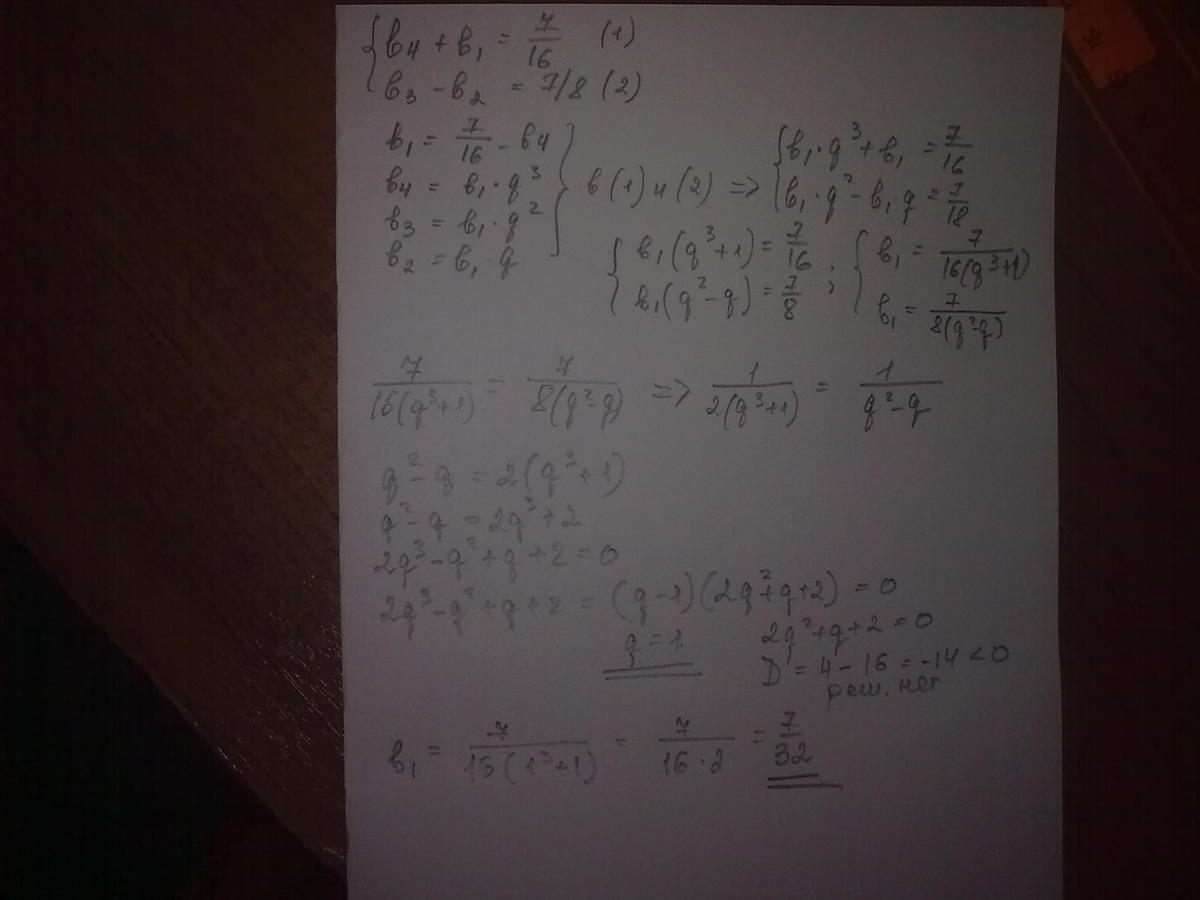 { b₄ + b₁ = 7/16 (1)
b₃ - b₂ = 7/8 (2)
b₁ = 7/16 - b₄
b₄ = b₁·q³
b₃ = b₁·q²
b₂ = b₁·q
} в (1) и (2) => { b₁·q³ + b₁ = 7/16
b₁·q² - b₁·q = 7/18
{ b₁(q³+1) = 7/16
b₁(q²-q) = 7/8
; { b₁ = 7/16(q³+1)
b₁ = 7/8(q²-q)
7/16(q³+1) = 7/8(q²-q) => 1/2(q³+1) = 1/q²-q
q²-q = 2(q³+1)
q²-q = 2q³+2
2q³-q²+q+2=0
2q³-q²+q+2 = (q-1)(2q²+q+2) = 0
q=1.
2q²+q+2=0
D = 4-16 = -14 < 0
реш. нет
b₁ = 7/16(1³+1) = 7/16·2 = 7/32